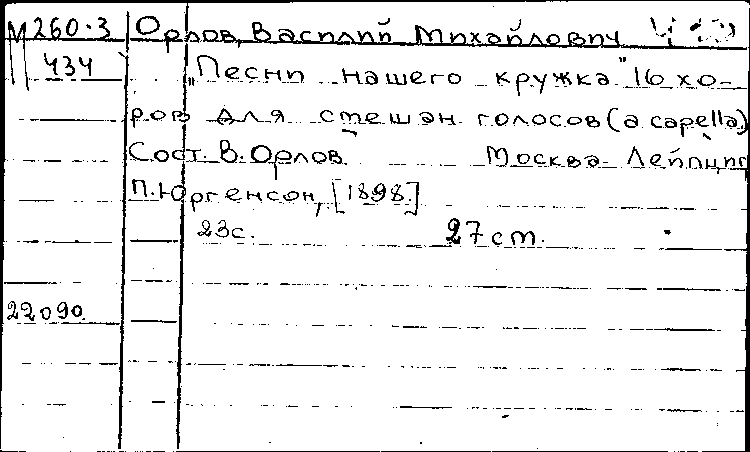 М 260.3 Орлов, Василий Михайлович
434 „Песни нашего кружка" 16 хо-
ров для смешан. голосов (a capella)
Сост. В. Орлов. Москва-Лейпциг
П. Юргенсон, [1898.]
23с. 27 cm.
22090